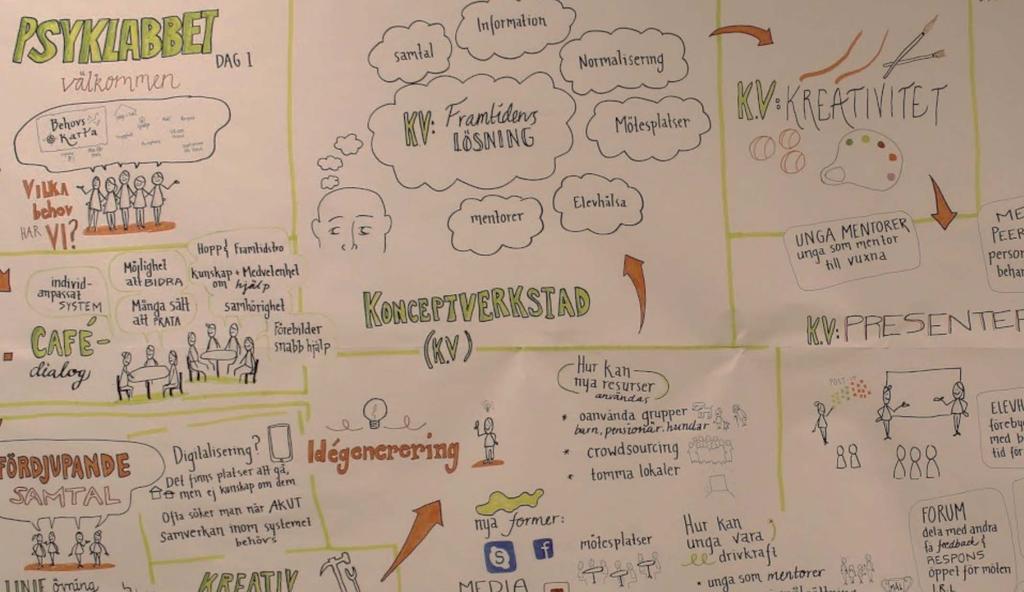 PSYKLABBET
DAG 1
välkommen
Behovs
Karta
VILKA
behov
HAR VI?
individ-
anpassat
SYSTEM
Möjlighet
att BIDRA
Hopp & Framtidstro
kunskap + Medvetenhet
om hjälp
Många sätt
att PRATA
samhörighet
Förebilder
snabb hjälp
CAFÉ-
dialog
FÖRDJUPANDE
SAMTAL
LINJE övning
Digitalisering?
Det finns platser att gå,
men ej kunskap om dem
Ofta söker man när AKUT
samverkan inom systemet
behövs
KREATIV
samtal
Information
Normalisering
KV: Framtidens
LÖSNING
Mötesplatser
mentorer
Elevhälsa
KONCEPTVERKSTAD
(KV)
Idégenerering
Hur kan
nya resurser
användas
* oanvända grupper
barn, pensionär, hundar
* crowdsourcing
* tomma lokaler
nya former:
S
f
MEDIA
mötesplatser
Hur kan
unga vara
drivkraft
• unga som mentorer
KV: KREATIVITET
UNGA MENTORER
unga som mentor
till vuxna
PEER
person
KV: PRESENTER
POST-IT
ELEVH
föreby
med b
tid för
FORUM
dela med andra
få feedback &
RESPONS
öppet för möten
I.R.L
MÅL